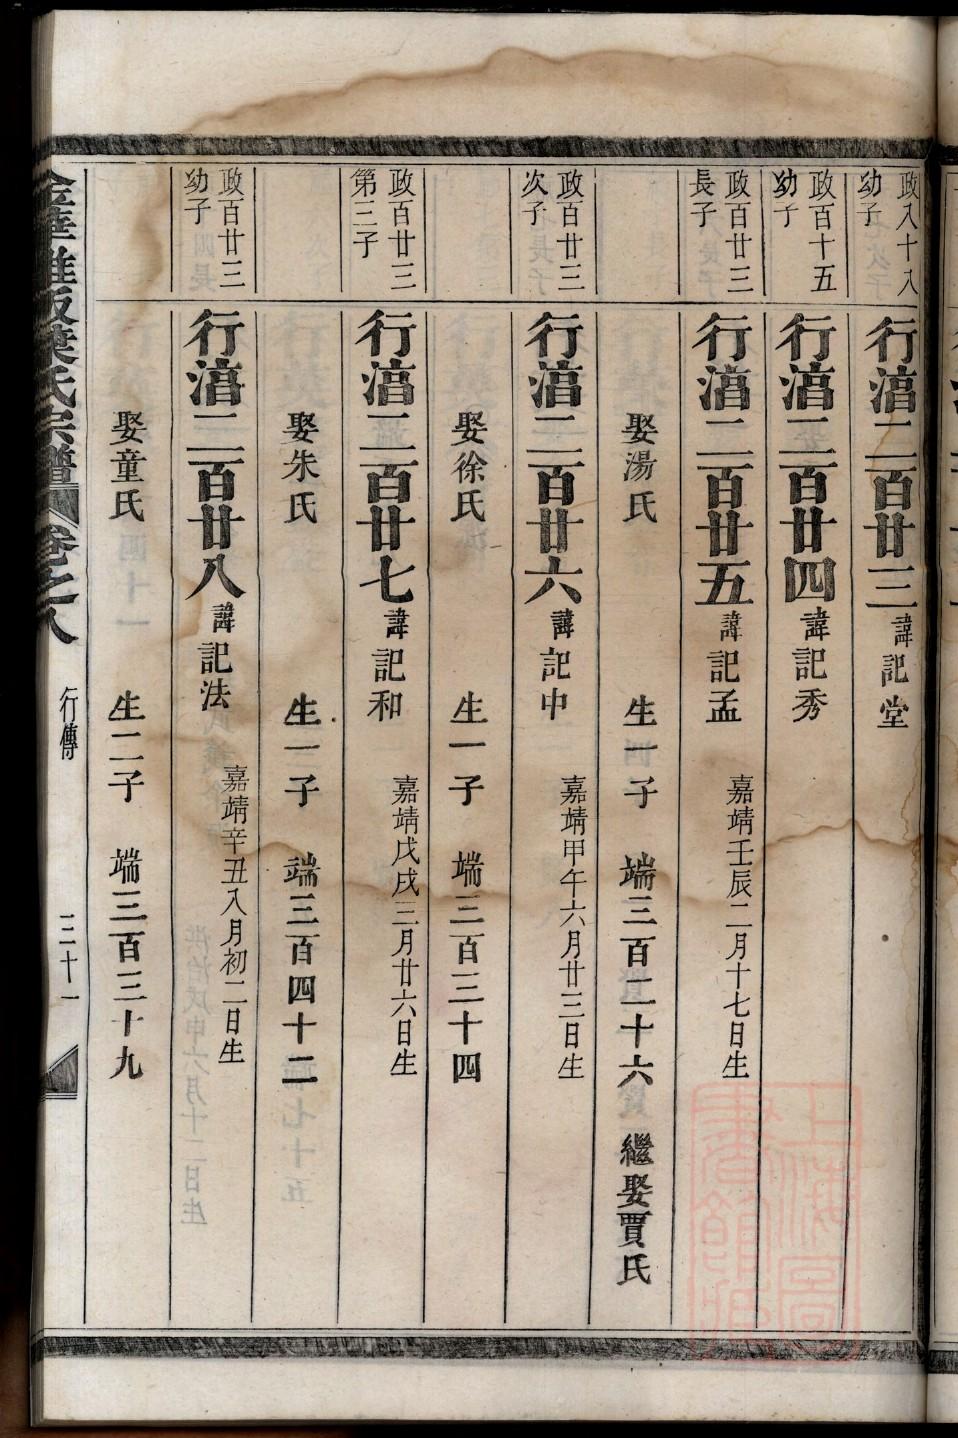 政八十八
幼子
行湻二百廿三 諱記堂
政百十五
幼子
行湻二百廿四 諱記秀
政百廿三
長子
行湻二百廿五 諱記孟 嘉靖壬辰二月十七日生
娶湯氏 生一子 端三百二十六 繼娶賈氏
政百廿三
次子
行湻二百廿六 諱記中 嘉靖甲午六月廿三日生
娶徐氏 生一子 端三百三十四
政百廿三
第三子
行湻二百廿七 諱記和 嘉靖戊戌三月廿六日生
娶朱氏 生一子 端三百四十二
政百廿三
幼子
行湻二百廿八 諱記法 嘉靖辛丑八月初二日生
娶童氏 生二子 端三百三十九
金華 阪葉氏宗譜 卷之八 行傳 三十一
上海圖書館藏